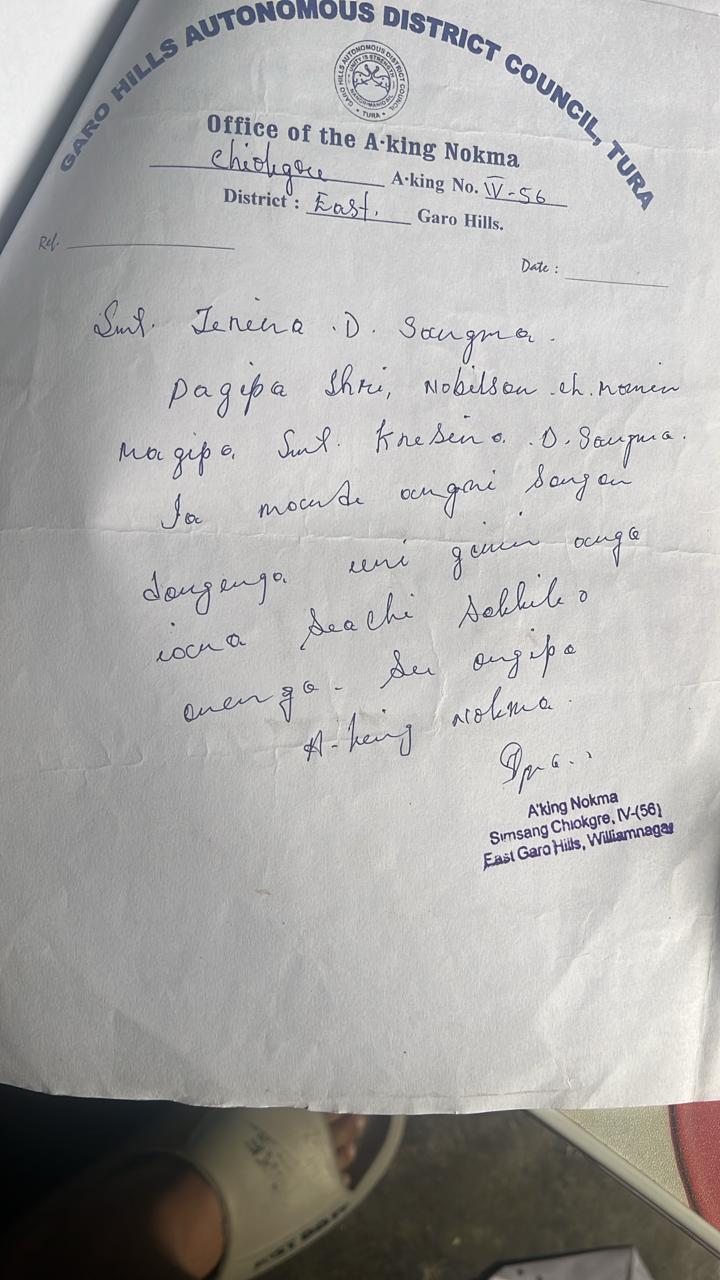 GARO HILLS AUTONOMOUS DISTRICT COUNCIL, TURA
GARO HILLS AUTONOMOUS DISTRICT COUNCIL
UNITY IS STRENGTH
TURA
Office of the A·king Nokma
Chiokgre A·king No. IV-56
District : East. Garo Hills.
Ref.
Date :
Smt. Jenina .D. Sangma.
Pagipa Shri, Nobilson .ch. Momin
Magipa Smt. Knesina .D. Sangma.
Ia mande angni Songon
dongenga uni gimin anga
iana Seachi Sakkiko
onenga. Se·ongipa
A·king Nokma.
A'king Nokma
Simsang Chiokgre, IV-(56)
East Garo Hills, Williamnagar